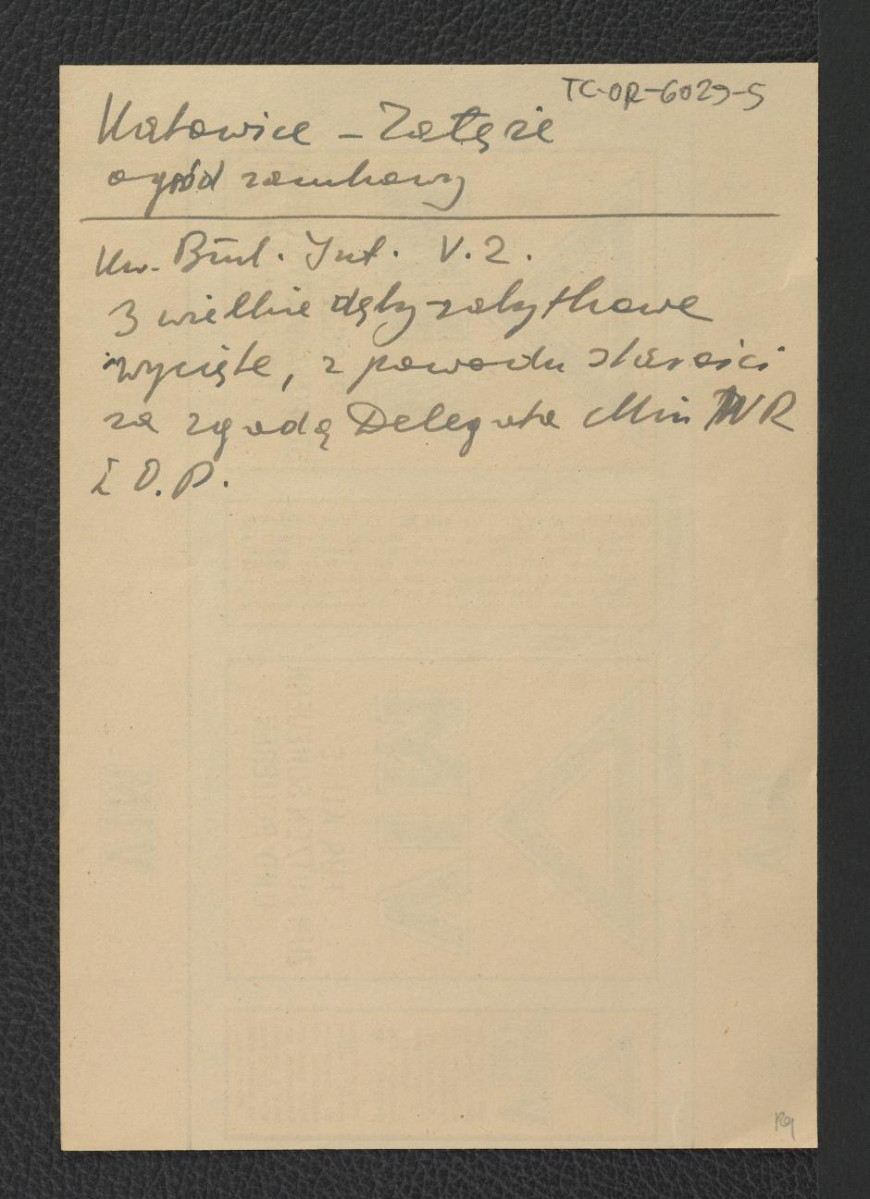 TC-OR-6029-5
Katowice – Załęże
ogród zamkowy
Kw. Biul. Inf. V. 2.
3 wielkie dęby zabytkowe
wycięte, z powodu starości
za zgodą Delegata Min WR
i O.P.
VIM